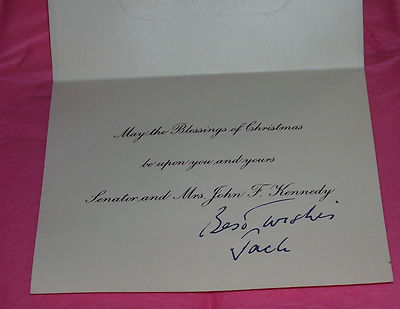 May the Blessings of Christmas
be upon you and yours
Senator and Mrs. John F. Kennedy
Best wishes
Jack